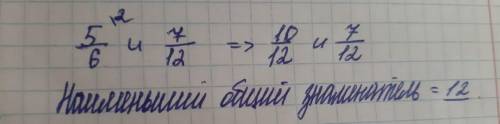 5/6 ·2 и 7/12 => 10/12 и 7/12
Наименьший общий знаменатель = 12.